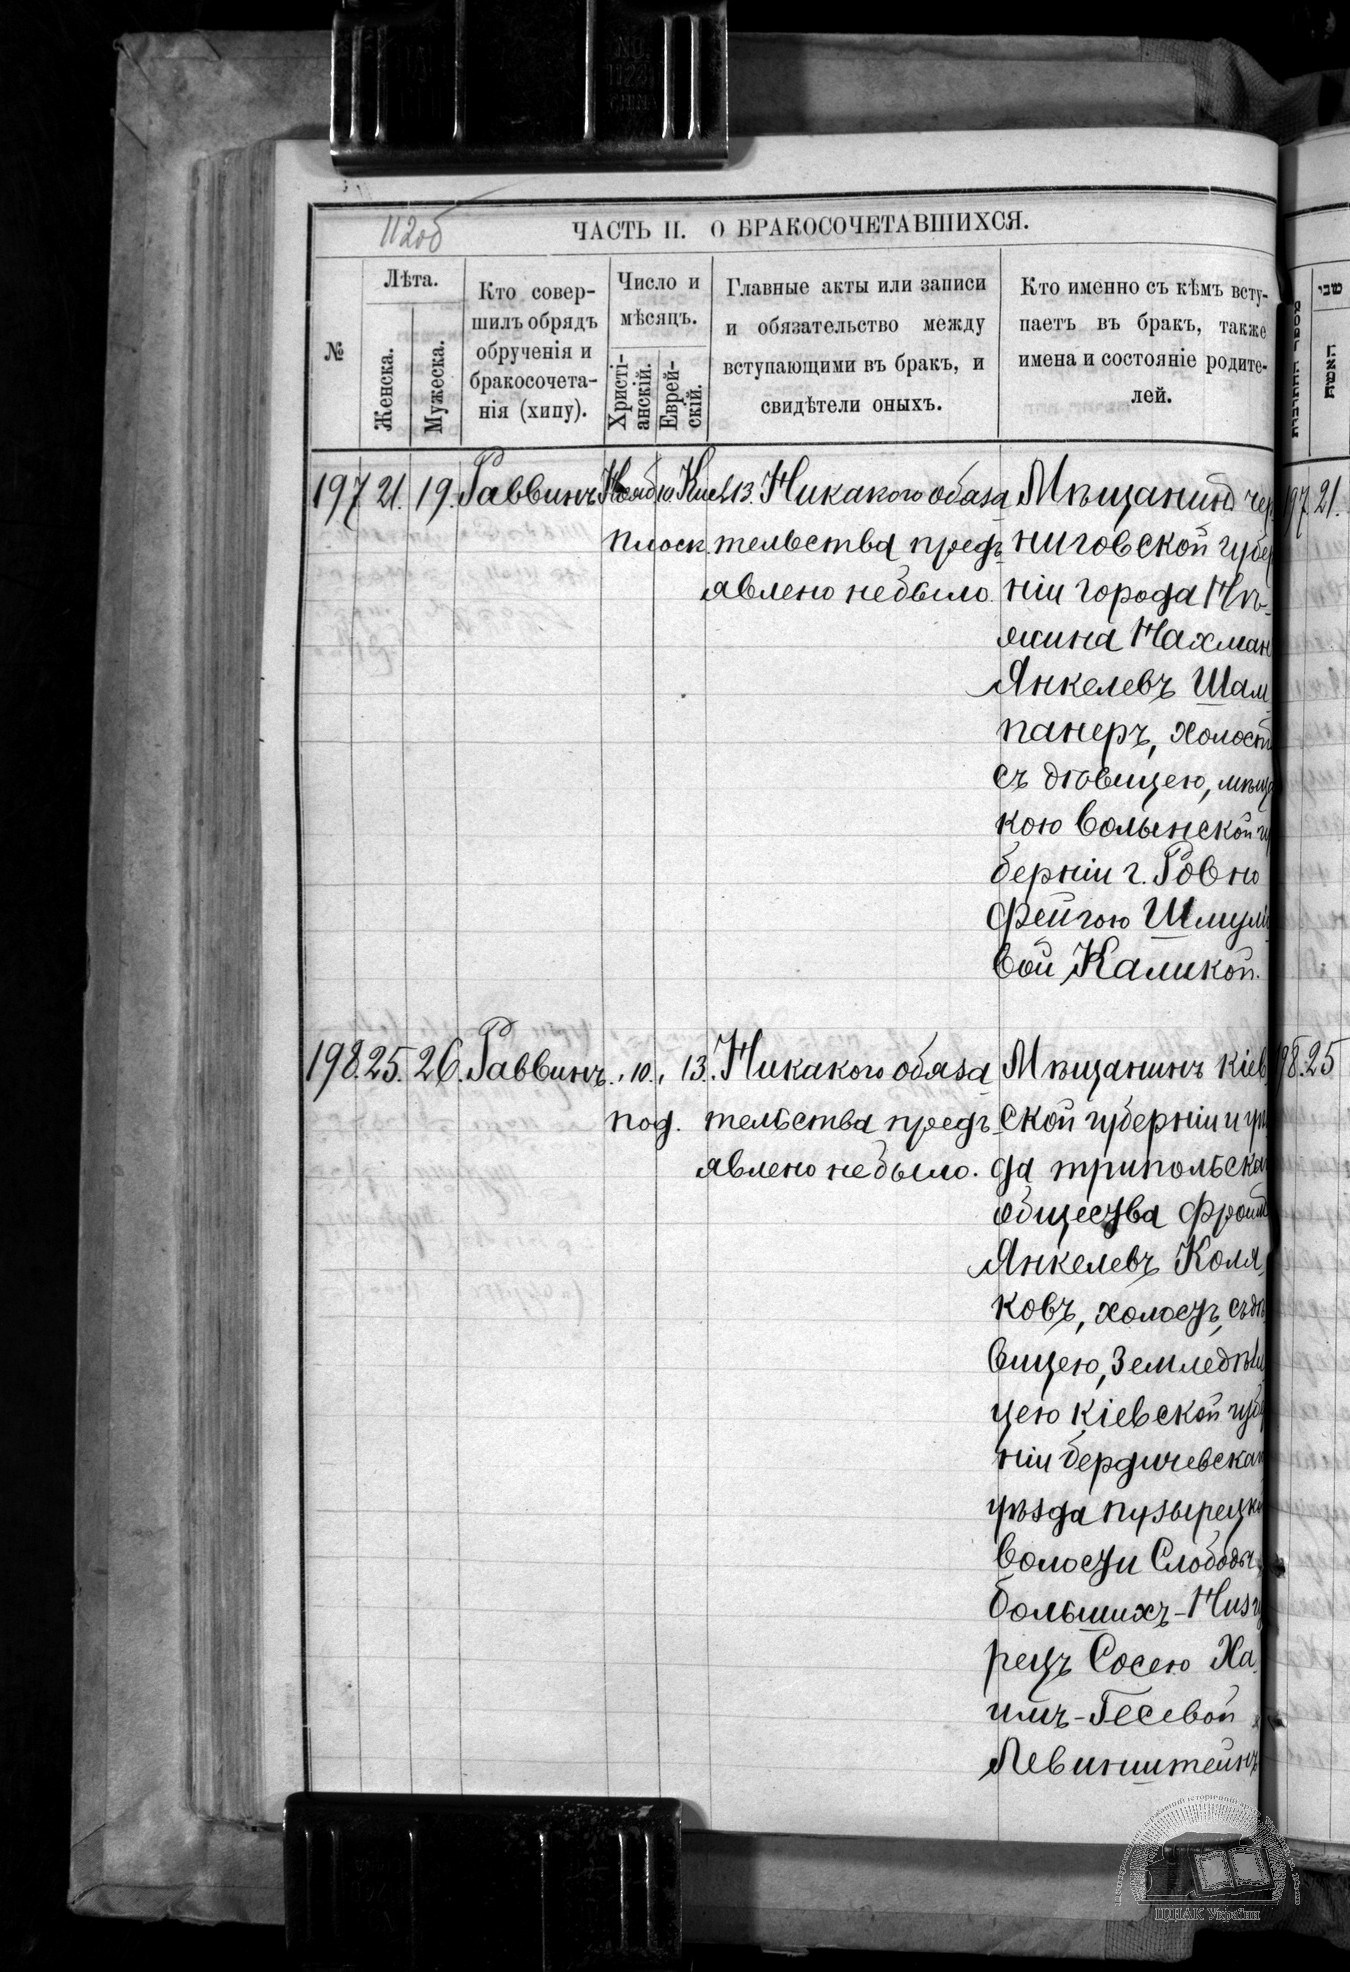 112об
ЧАСТЬ II. О БРАКОСОЧЕТАВШИХСЯ.
№
Лѣта.
Женска.
Мужеска.
Кто совер-
шилъ обрядъ
обрученія и
бракосочета-
нія (хипу).
Число и
мѣсяцъ.
Христі-
анскій.
Еврей-
скій.
Главные акты или записи
и обязательство между
вступающими въ бракъ, и
свидѣтели оныхъ.
Кто именно съ кѣмъ всту-
паетъ въ бракъ, также
имена и состояніе родите-
лей.
197 21. 19. Раввинъ Нояб. 10 Кисл. 13. Никакого обяза
плоск.
тельства предъ
явлено небыло.
Мѣщанинъ чер
ниговской губер
ніи города Нѣ-
жина Нахман
Янкелевъ Шам-
панеръ, холост
съ дѣвицею, мѣща
кою Волынской гу
берніи г. Ровно
Фейгою Шмулі
вой Каликой.
198. 25. 26. Раввинъ. „ 10. „ 13. Никакого обяза
под.
тельства предъ-
явлено небыло.
Мѣщанинъ Кіев
ской губерніи и уѣз
да трипольскаг
общества Фроим
Янкелевъ Коля-
ковъ, холостъ, съ дѣ
вицею, Земледѣл
цею Кіевской губе
ніи бердичевскаг
уѣзда пузырецк
волости Слободы
большихъ-Низгу
рецъ Сосею Ха-
имъ-Гесевой
Левинштейнъ
197 21.
198. 25
ЦДІАК України